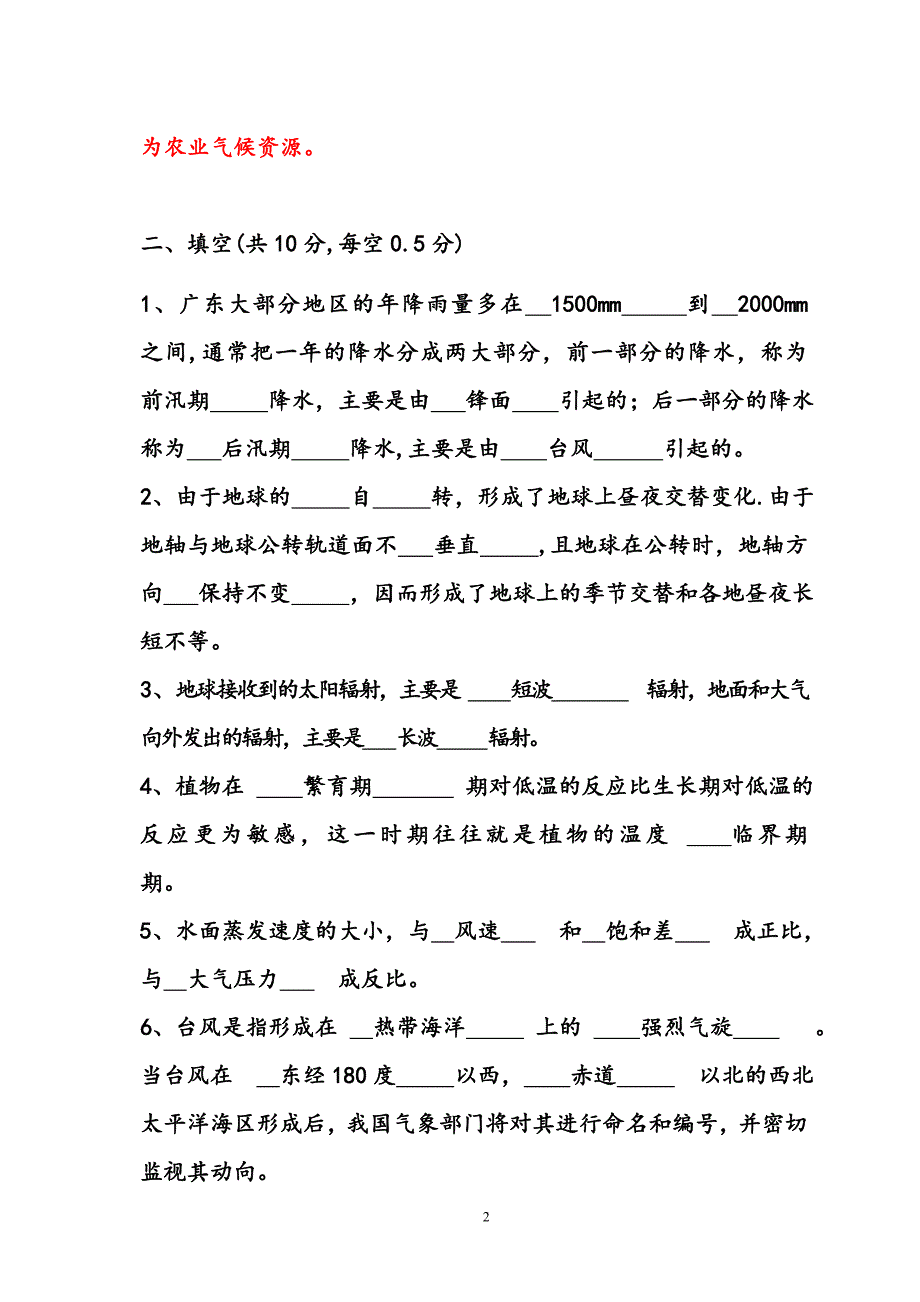 为农业气候资源。
二、填空(共10分,每空0.5分)
1、广东大部分地区的年降雨量多在__1500mm_____到__2000mm
之间,通常把一年的降水分成两大部分，前一部分的降水，称为
前汛期_____降水，主要是由___锋面____引起的；后一部分的降水
称为___后汛期_____降水,主要是由____台风______引起的。
2、由于地球的_____自_____转，形成了地球上昼夜交替变化.由于
地轴与地球公转轨道面不___垂直_____,且地球在公转时，地轴方
向___保持不变_____，因而形成了地球上的季节交替和各地昼夜长
短不等。
3、地球接收到的太阳辐射，主要是____短波_______ 辐射，地面和大气
向外发出的辐射，主要是___长波_____辐射。
4、植物在 ____繁育期_______ 期对低温的反应比生长期对低温的
反应更为敏感，这一时期往往就是植物的温度 ____临界期
期。
5、水面蒸发速度的大小，与__风速___ 和__饱和差___ 成正比，
与__大气压力___ 成反比。
6、台风是指形成在 __热带海洋_____ 上的 ____强烈气旋____ 。
当台风在 __东经180度_____以西，____赤道_____ 以北的西北
太平洋海区形成后，我国气象部门将对其进行命名和编号，并密切
监视其动向。
2